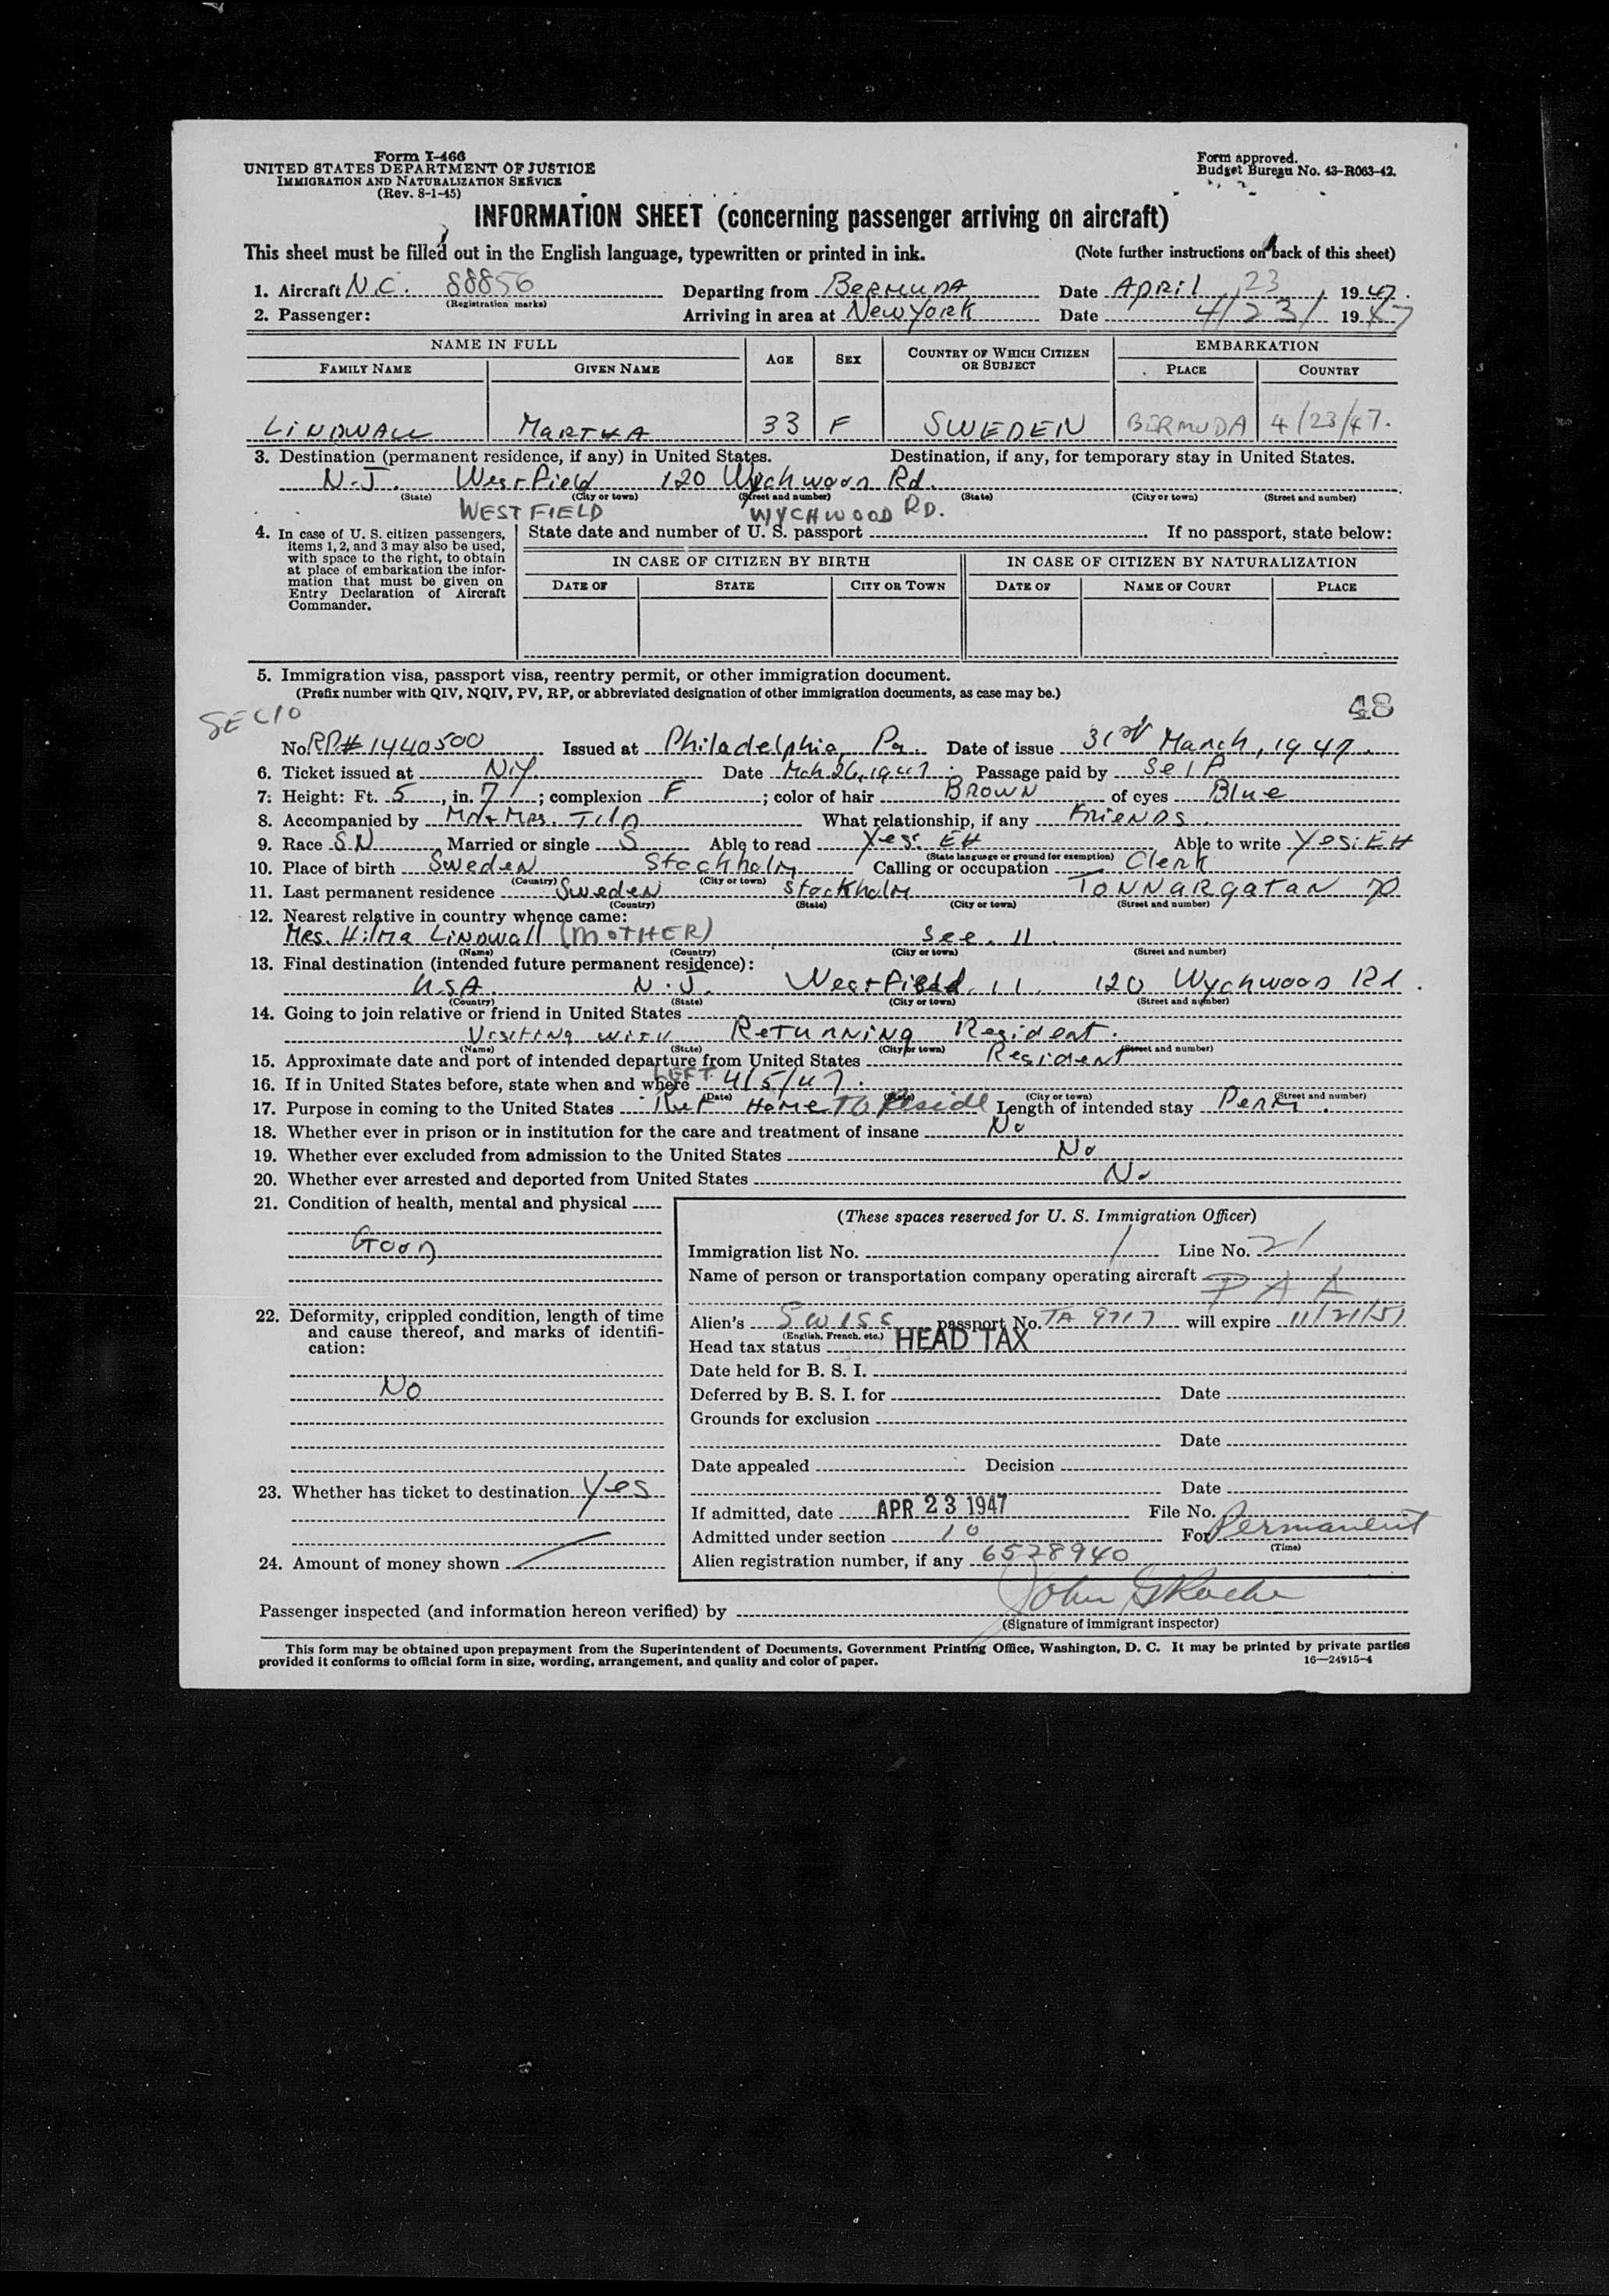 Form I-466
UNITED STATES DEPARTMENT OF JUSTICE
IMMIGRATION AND NATURALIZATION SERVICE
(Rev. 8-1-45)
Form approved.
Budget Bureau No. 43-R063-42.
INFORMATION SHEET (concerning passenger arriving on aircraft)
This sheet must be filled out in the English language, typewritten or printed in ink. (Note further instructions on back of this sheet)
1. Aircraft N.C. 88856 Departing from BERMUDA Date APRIL 23, 1947.
(Registration marks)
2. Passenger: Arriving in area at New York Date 4/23/ 1947
NAME IN FULL AGE SEX COUNTRY OF WHICH CITIZEN OR SUBJECT EMBARKATION
FAMILY NAME GIVEN NAME PLACE COUNTRY
LINDWALL MARTHA 33 F SWEDEN BERMUDA 4/23/47.
3. Destination (permanent residence, if any) in United States. Destination, if any, for temporary stay in United States.
N.J. Westfield 120 Wychwood Rd.
(State) (City or town) (Street and number) (State) (City or town) (Street and number)
WESTFIELD WYCHWOOD RD.
4. In case of U. S. citizen passengers, items 1, 2, and 3 may also be used, with space to the right, to obtain at place of embarkation the information that must be given on Entry Declaration of Aircraft Commander.
State date and number of U. S. passport If no passport, state below:
IN CASE OF CITIZEN BY BIRTH IN CASE OF CITIZEN BY NATURALIZATION
DATE OF STATE CITY OR TOWN DATE OF NAME OF COURT PLACE
5. Immigration visa, passport visa, reentry permit, or other immigration document.
(Prefix number with QIV, NQIV, PV, RP, or abbreviated designation of other immigration documents, as case may be.)
48
SEC 10
No. RP# 1440500 Issued at Philadelphia, Pa. Date of issue 31st March, 1947.
6. Ticket issued at N.Y. Date Mch 26, 1947. Passage paid by Self
7. Height: Ft. 5, in. 7; complexion F; color of hair BROWN of eyes Blue
8. Accompanied by Mr & Mrs. What relationship, if any Friends.
9. Race SN Married or single S Able to read Yes: EH Able to write Yes: EH
(State language or ground for exemption)
10. Place of birth Sweden Stockholm Calling or occupation Clerk
(Country) (City or town)
11. Last permanent residence Sweden Stockholm TONNARGATAN 70
(Country) (State) (City or town) (Street and number)
12. Nearest relative in country whence came:
Mrs. Hilma Lindwall (MOTHER) See. 11.
(Name) (Country) (City or town) (Street and number)
13. Final destination (intended future permanent residence):
USA. N.J. Westfield, 11. 120 Wychwood Rd.
(Country) (State) (City or town) (Street and number)
14. Going to join relative or friend in United States
Visiting with Returning Resident.
(Name) (State) (City or town) (Street and number)
15. Approximate date and port of intended departure from United States Resident
16. If in United States before, state when and where LEFT 4/5/47.
(Date) (State) (City or town) (Street and number)
17. Purpose in coming to the United States Ret Home TO Reside Length of intended stay Perm.
18. Whether ever in prison or in institution for the care and treatment of insane No
19. Whether ever excluded from admission to the United States No
20. Whether ever arrested and deported from United States No
21. Condition of health, mental and physical
Good
22. Deformity, crippled condition, length of time and cause thereof, and marks of identification:
No
23. Whether has ticket to destination Yes
24. Amount of money shown
(These spaces reserved for U. S. Immigration Officer)
Immigration list No. 1 Line No. 21
Name of person or transportation company operating aircraft
P A A
Alien's SWISS passport No. TA 9717 will expire 11/21/51
(English, French, etc.)
Head tax status HEAD TAX
Date held for B. S. I.
Deferred by B. S. I. for Date
Grounds for exclusion
Date
Date appealed Decision
Date
If admitted, date APR 23 1947 File No.
Admitted under section 10 For Permanent
(Time)
Alien registration number, if any 6528940
Passenger inspected (and information hereon verified) by John G Roche
(Signature of immigrant inspector)
This form may be obtained upon prepayment from the Superintendent of Documents, Government Printing Office, Washington, D. C. It may be printed by private parties
provided it conforms to official form in size, wording, arrangement, and quality and color of paper. 16—24915-4